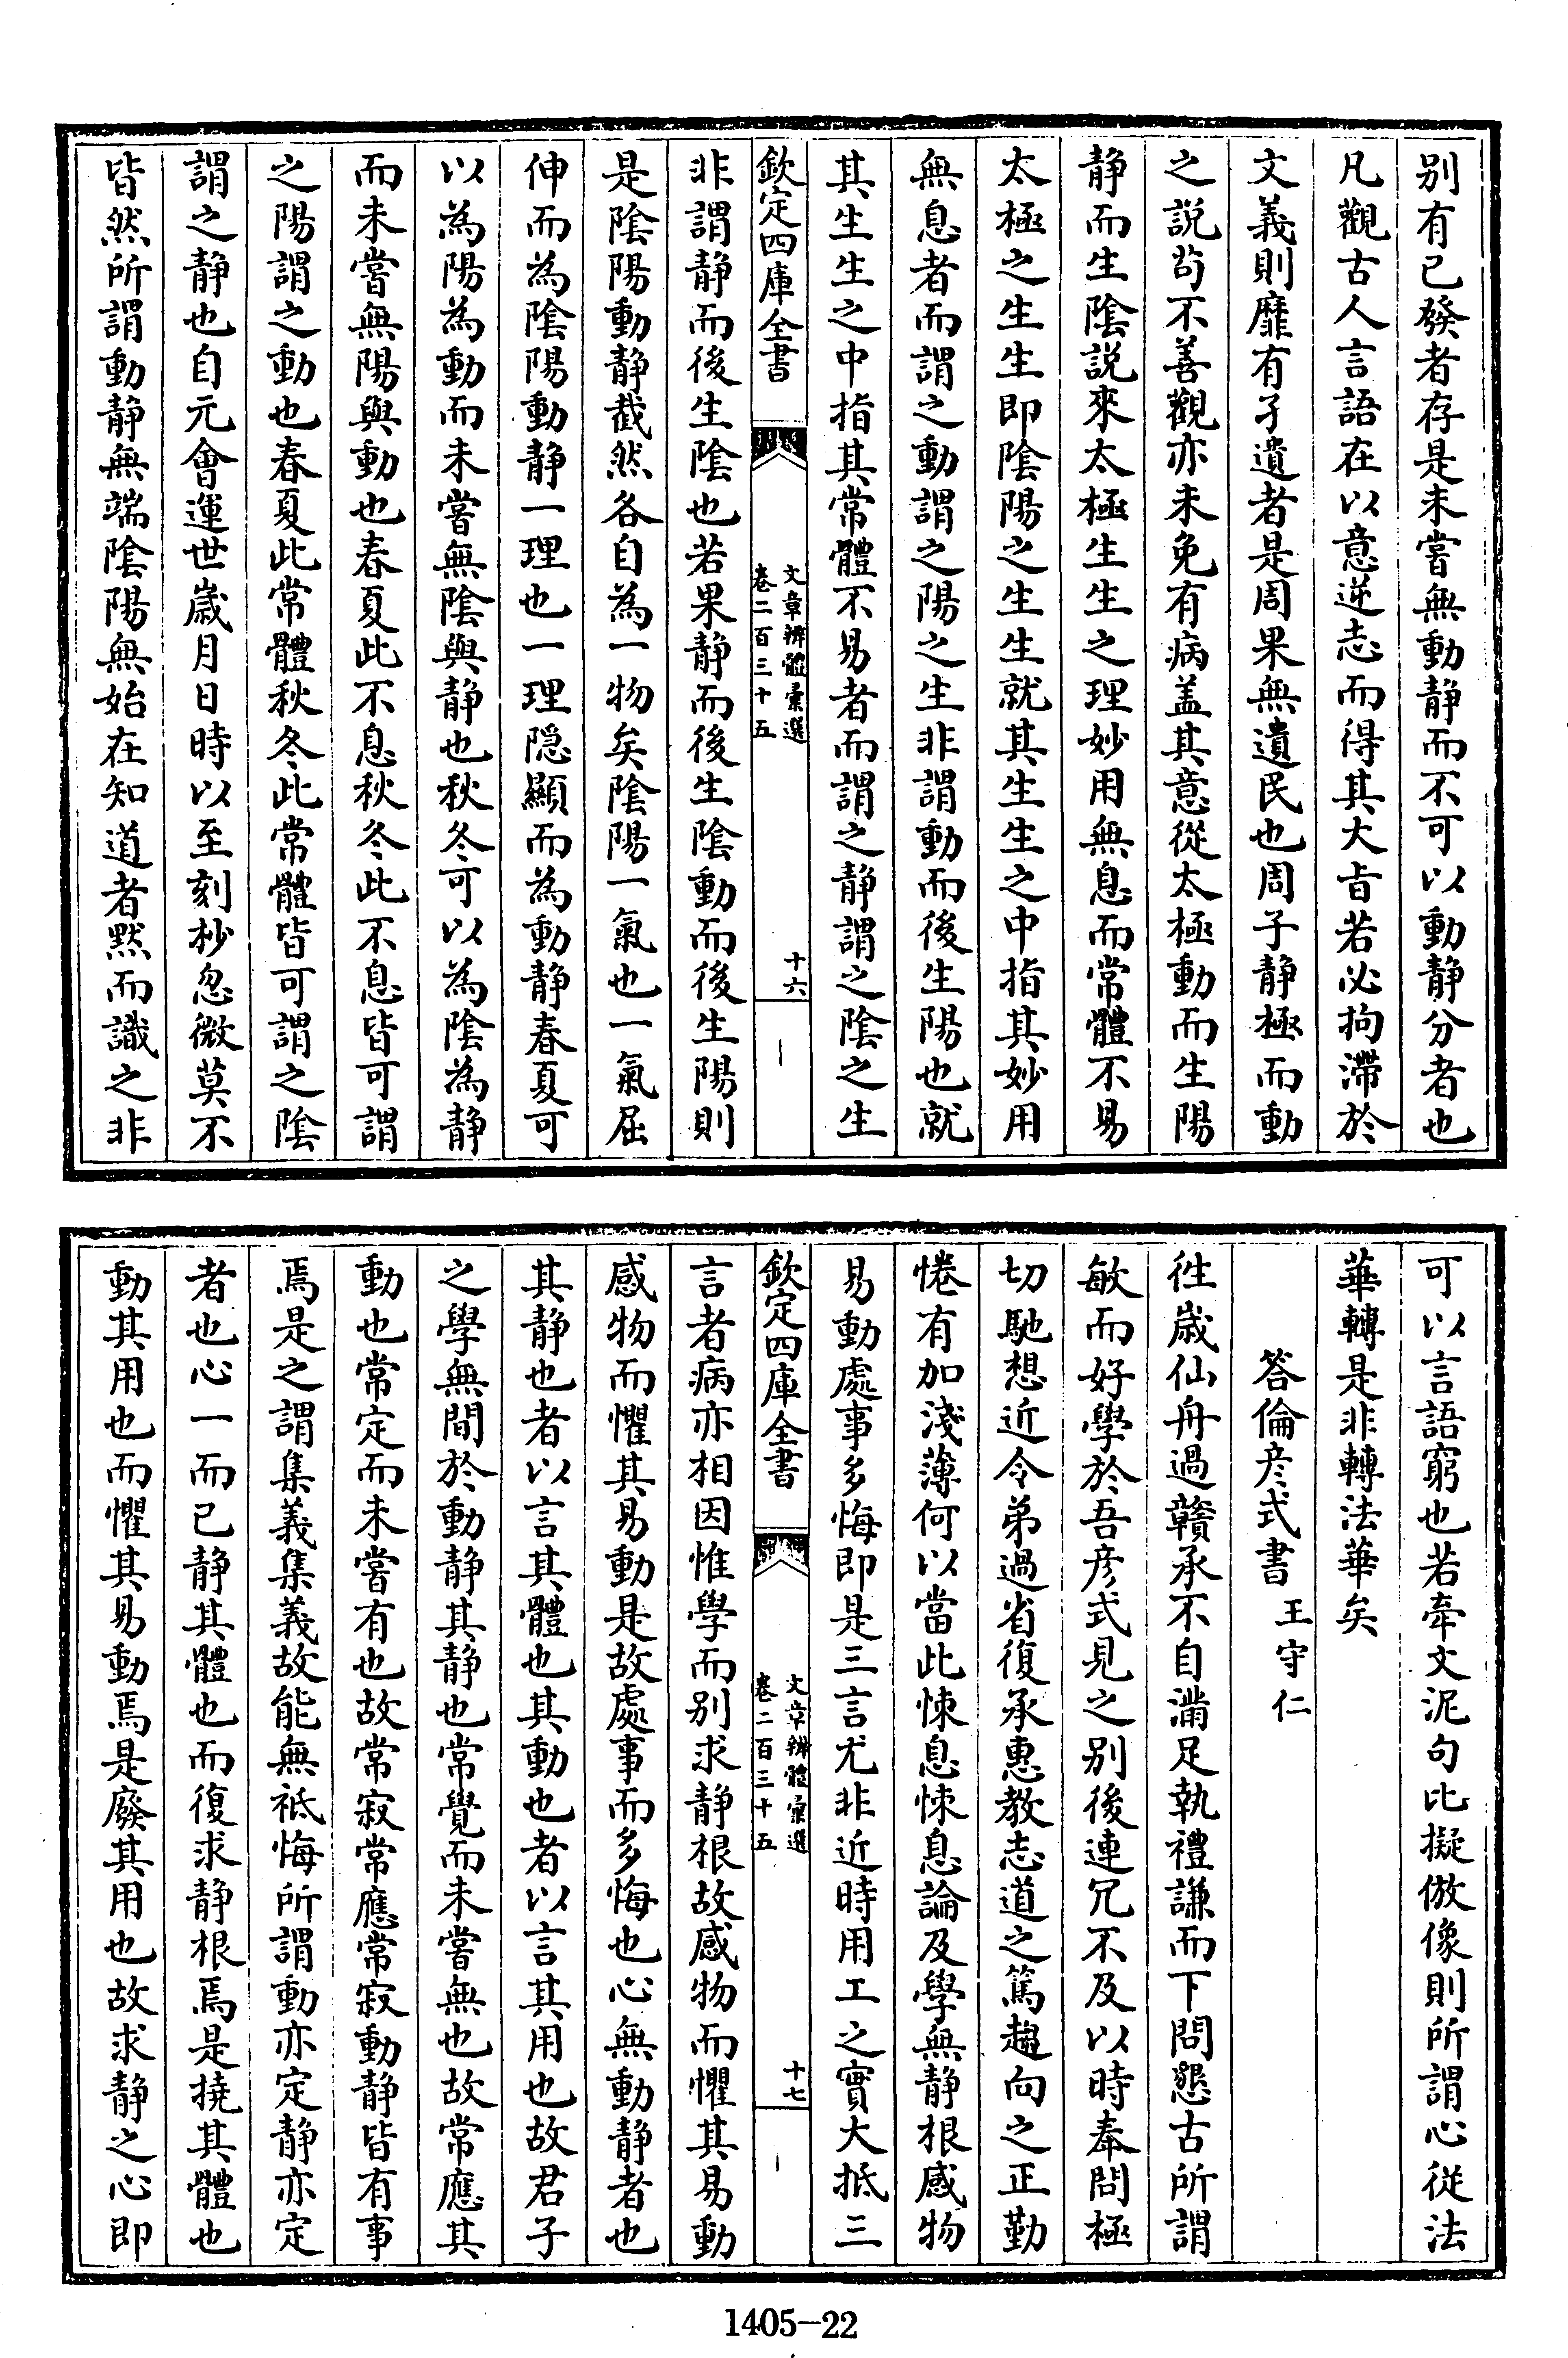 别有已發者存是未嘗無動静而不可以動静分者也
凡觀古人言語在以意逆志而得其大旨若必拘滯於
文義則靡有孑遺者是周果無遺民也周子静極而動
之説苟不善觀亦未免有病盖其意從太極動而生陽
静而生陰説來太極生生之理妙用無息而常體不易
太極之生生即陰陽之生生就其生生之中指其妙用
無息者而謂之動謂之陽之生非謂動而後生陽也就
其生生之中指其常體不易者而謂之静謂之陰之生
欽定四庫全書
文章辨體彙選
卷二百三十五
十六
非謂静而後生陰也若果静而後生陰動而後生陽則
是陰陽動静截然各自為一物矣陰陽一氣也一氣屈
伸而為陰陽動静一理也一理隱顯而為動静春夏可
以為陽為動而未嘗無陰與静也秋冬可以為陰為静
而未嘗無陽與動也春夏此不息秋冬此不息皆可謂
之陽謂之動也春夏此常體秋冬此常體皆可謂之陰
謂之静也自元會運世歳月日時以至刻杪忽微莫不
皆然所謂動静無端陰陽無始在知道者黙而識之非
可以言語窮也若牽文泥句比擬倣像則所謂心從法
華轉是非轉法華矣
答倫彦式書 王守仁
徃歳仙舟過贛承不自滿足執禮謙而下問懇古所謂
敏而好學於吾彦式見之别後連冗不及以時奉問極
切馳想近令弟過省復承惠教志道之篤趨向之正勤
惓有加淺薄何以當此悚息悚息論及學無静根感物
易動處事多悔即是三言尤非近時用工之實大抵三
欽定四庫全書
文章辨體彙選
卷二百三十五
十七
言者病亦相因惟學而别求静根故感物而懼其易動
感物而懼其易動是故處事而多悔也心無動静者也
其静也者以言其體也其動也者以言其用也故君子
之學無間於動静其静也常覺而未嘗無也故常應其
動也常定而未嘗有也故常寂常應常寂動静皆有事
焉是之謂集義集義故能無祗悔所謂動亦定静亦定
者也心一而已静其體也而復求静根焉是撓其體也
動其用也而懼其易動焉是廢其用也故求静之心即
1405-22